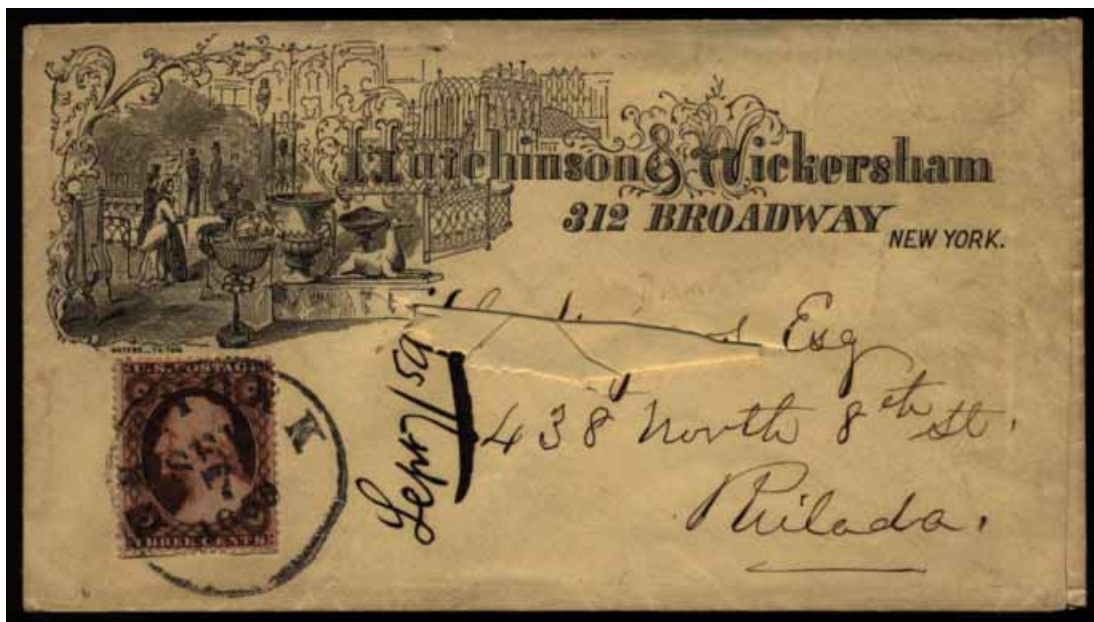 Hutchinson & Wickersham
312 BROADWAY NEW YORK.
Esq
438 North 8th St.
Philada.
Sept 7/59
U.S. POSTAGE
THREE CENTS
K